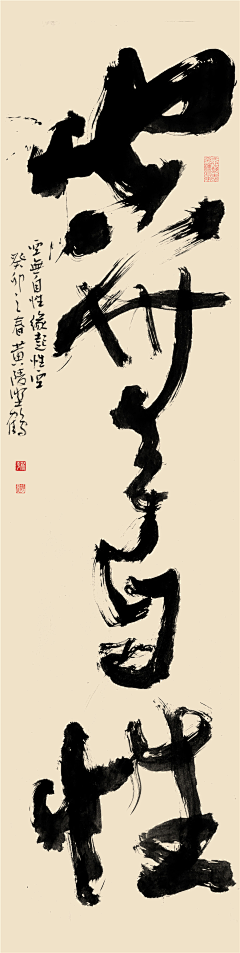 空無自性
空無自性緣起性空
癸卯之春黄陵野鶴